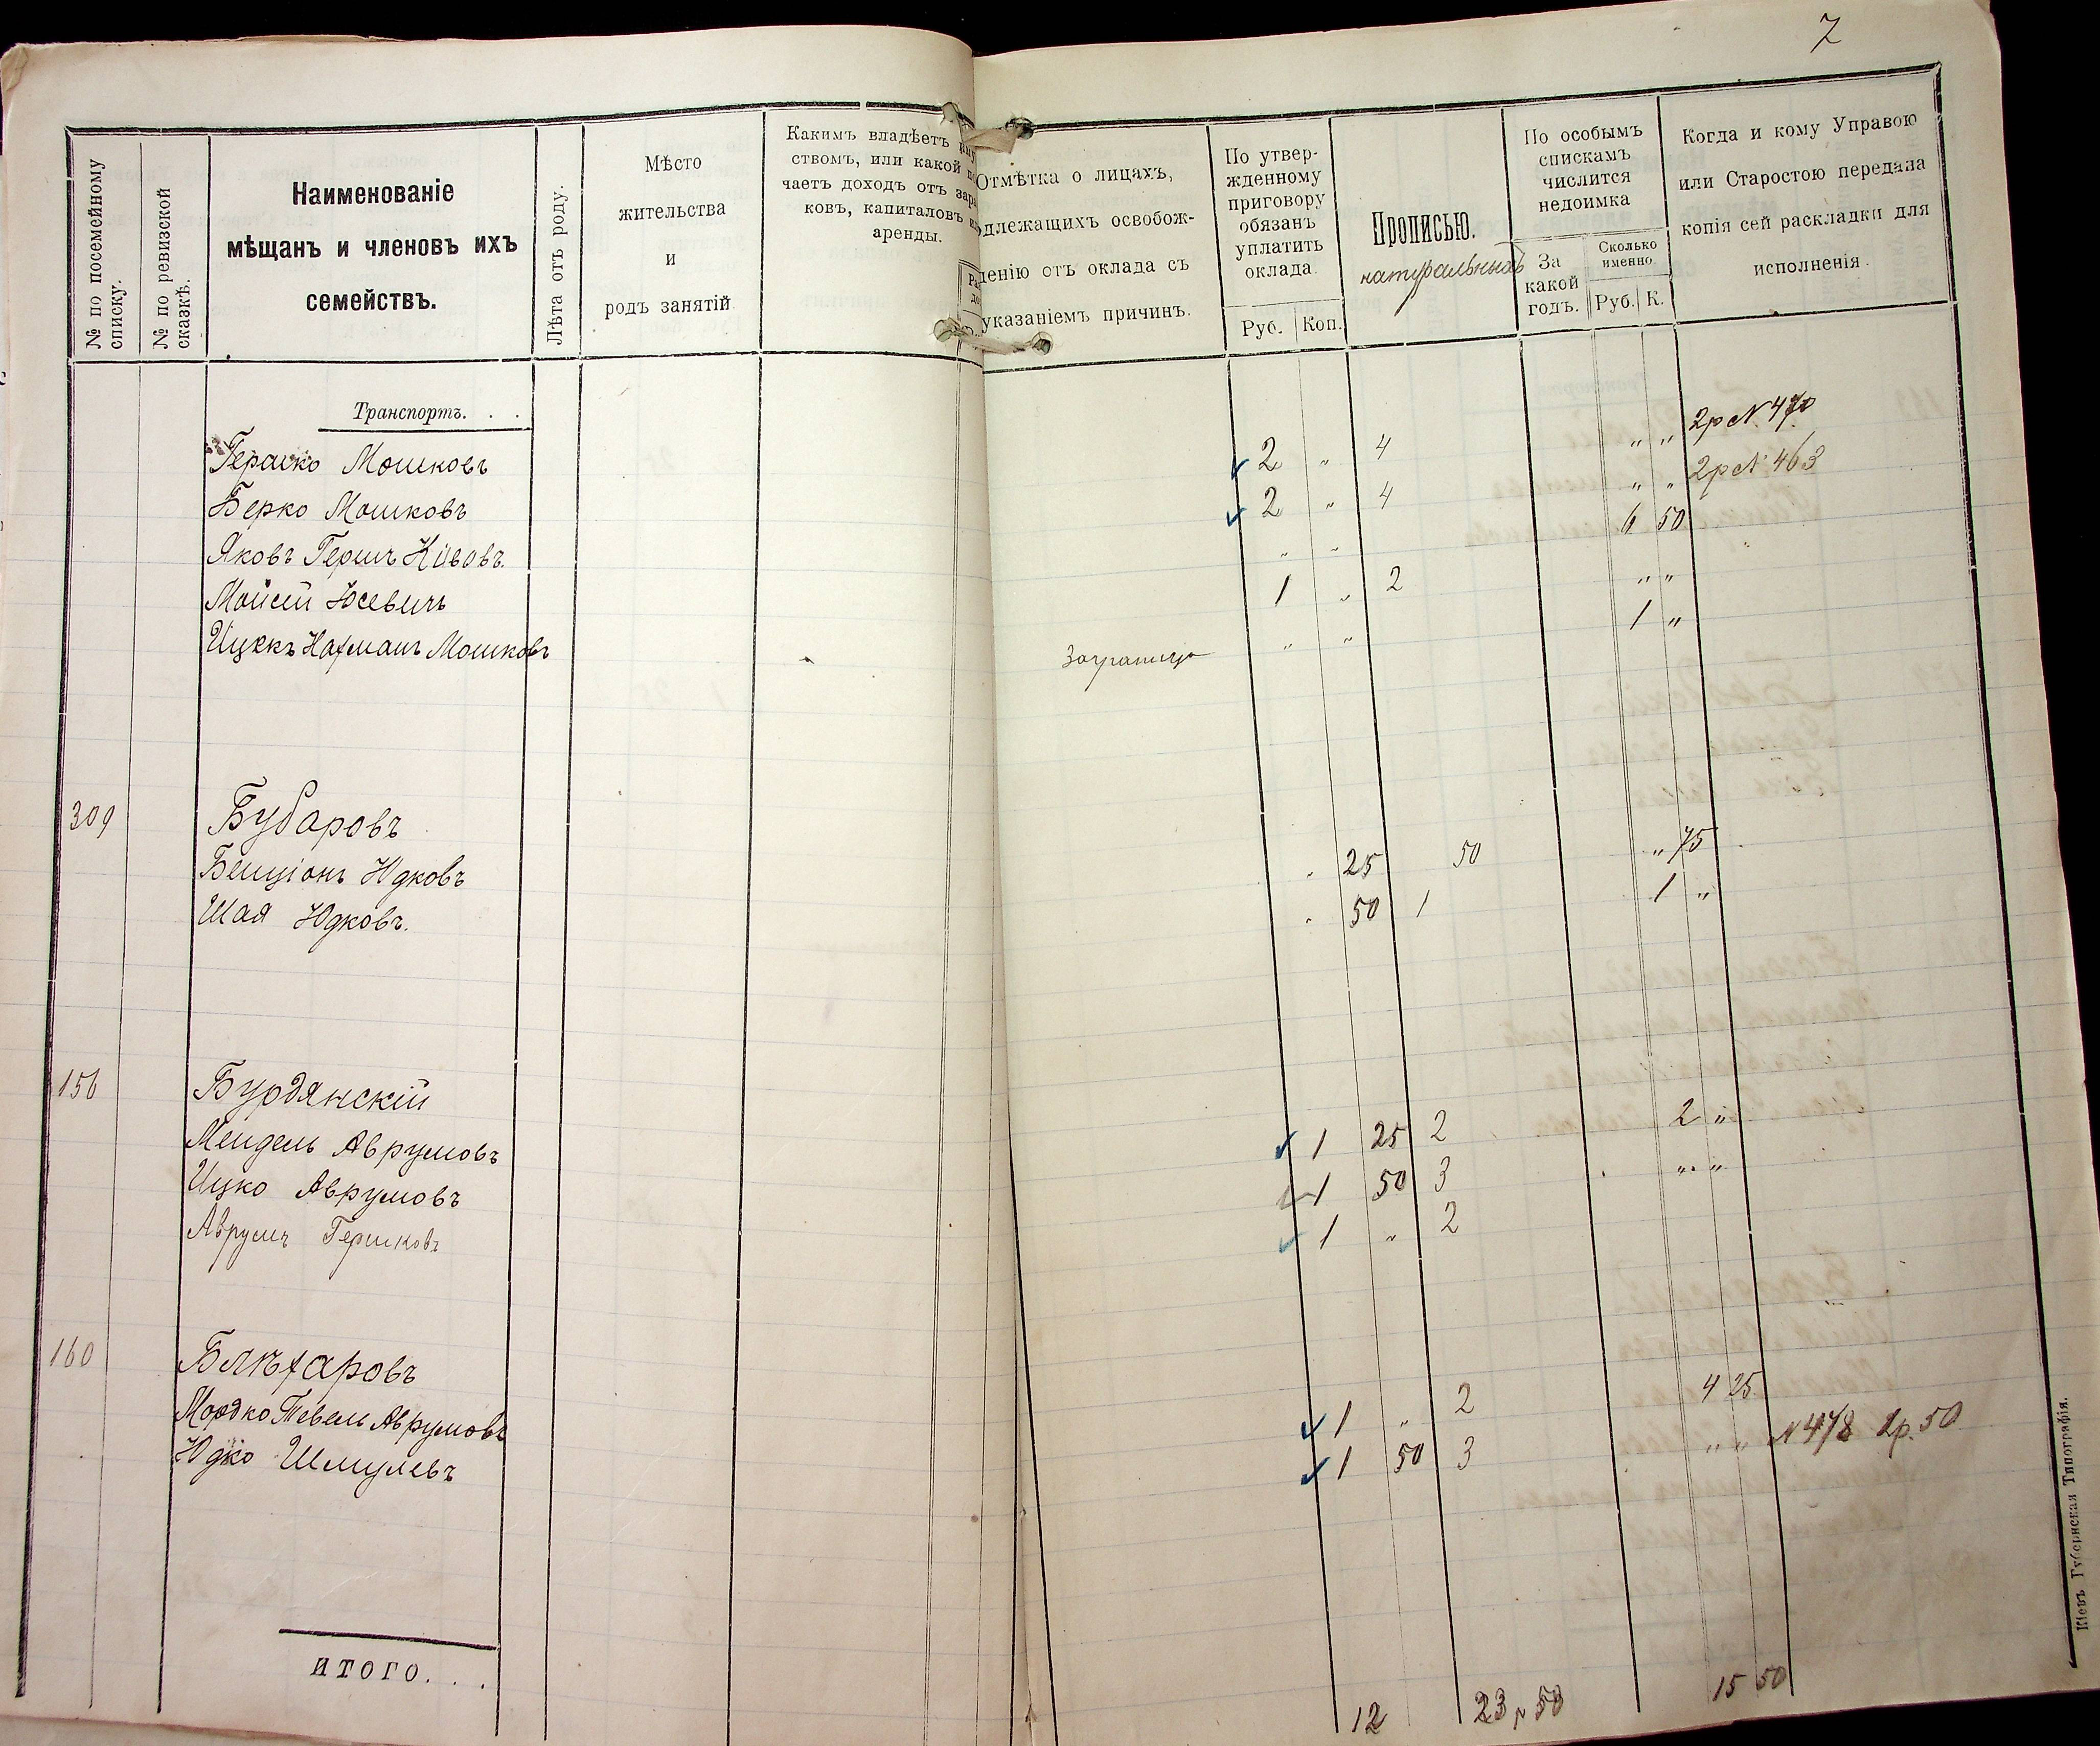 7
№ по посемейному
списку.
№ по ревизской
сказкѣ.
Наименованіе
мѣщанъ и членовъ ихъ
семействъ.
Лѣта отъ роду.
Мѣсто
жительства
и
родъ занятій.
Какимъ владѣетъ иму
ствомъ, или какой по
чаетъ доходъ отъ зара
ковъ, капиталовъ и
аренды.
Отмѣтка о лицахъ,
длежащихъ освобож-
денію отъ оклада съ
указаніемъ причинъ.
По утвер-
жденному
приговору
обязанъ
уплатить
оклада.
Руб. Коп.
Прописью.
натуральныхъ
По особымъ
спискамъ
числится
недоимка
За
какой
годъ.
Сколько
именно.
Руб. К.
Когда и кому Управою
или Старостою передана
копія сей раскладки для
исполненія.
Транспортъ. . .
Гершко Мошковъ 2 " 4 " " 2р № 470
Берко Мошковъ 2 " 4 " " 2р № 463
Яковъ Гершъ Кивовъ. " " 6 50
Мойсей Юсевичъ 1 " 2 " "
Ицекъ Нахманъ Мошковъ Заграницу " " 1 "
309 Бубаровъ
Бенціонъ Юдковъ " 25 50 " 75
Шая Юдковъ. " 50 1 1 "
156 Бурдянскій
Мендель Аврумовъ 1 25 2 2 "
Ицко Аврумовъ 1 50 3 " "
Аврумъ Гершковъ 1 " 2
160 Бляхаровъ
Мордко Тевель Аврумовъ 1 " 2 4 25
Юдко Шмулевъ 1 50 3 " " № 478 1р. 50
ИТОГО. . . 12 23 р 50 15 50
Кіевъ Губернская Типографія.